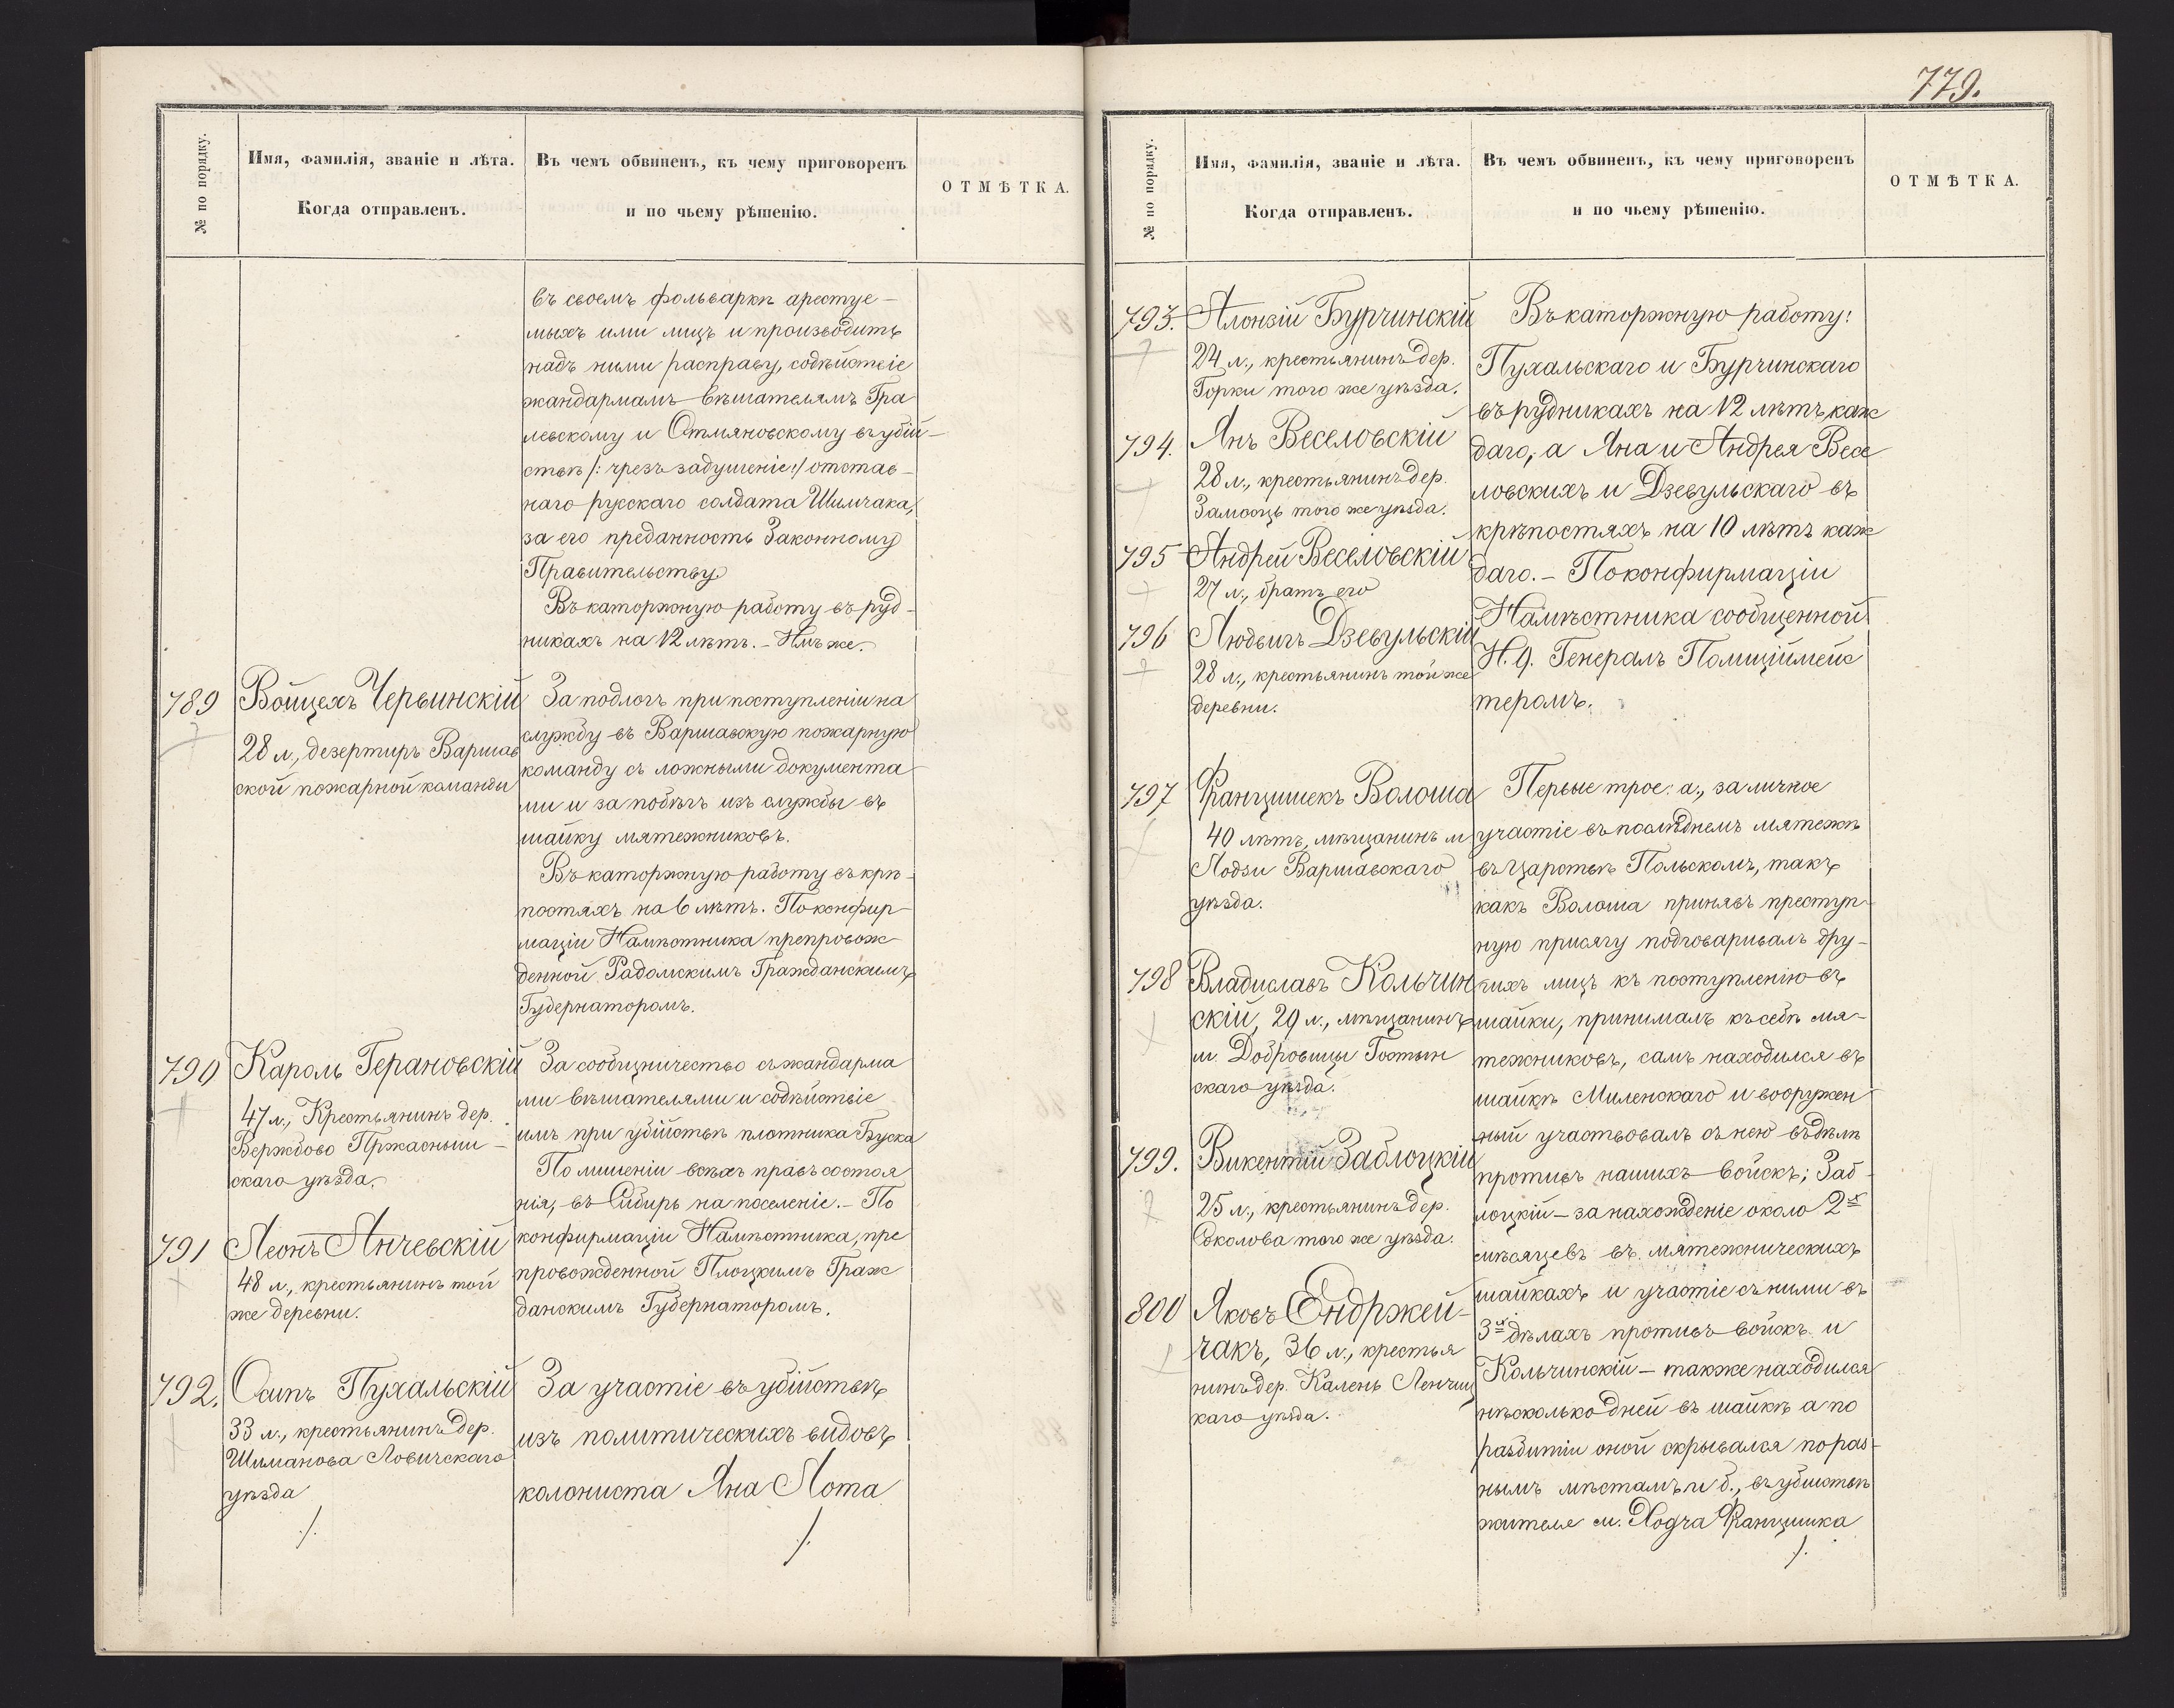 № по порядку.
Имя, фамилія, званіе и лѣта.
Когда отправленъ.
Въ чемъ обвиненъ, къ чему приговоренъ
и по чьему рѣшенію.
ОТМѢТКА.
въ своемъ фольваркѣ арестуе-
мыхъ ими лицъ и производить
надъ ними расправу, содѣйствіе
жандармамъ вѣшателямъ Гра
левскому и Отмяновскому въ убій-
ствѣ /: чрезъ задушеніе :/ отстав-
наго русскаго солдата Шимчака,
за его преданность Законному
Правительству
Въ каторжную работу въ руд-
никахъ на 12 лѣтъ. - Имъ же.
789
Войцехъ Червинскій
28 л., дезертиръ Варшав
ской пожарной команды
За подлогъ при поступленіи на
службу въ Варшавскую пожарную
команду съ ложными документа
ми и за побѣгъ изъ службы въ
шайку мятежниковъ.
Въ каторжную работу въ крѣ-
постяхъ на 6 лѣтъ. По конфир-
маціи Намѣстника препровож-
денной Радомскимъ Гражданскимъ
Губернаторомъ.
790
Кароль Герановскій
47 л., Крестьянинъ дер.
Вержбово Пржасныш-
скаго уѣзда.
За сообщничество съ жандарма
ми вѣшателями и содѣйствіе
имъ при убійствѣ плотника Буска
По лишеніи всѣхъ правъ состоя
нія, въ Сибирь на поселеніе. - По
конфирмаціи Намѣстника, пре
провожденной Плоцкимъ Граж
данскимъ Губернаторомъ.
791
Леонъ Анчевскій
48 л., крестьянинъ той
же деревни.
792.
Осипъ Пухальскій
33 л., крестьянинъ дер.
Шиманова Ловичскаго
уѣзда
За участіе въ убійствѣ
изъ политическихъ видовъ
колониста Яна Лота
779.
№ по порядку.
Имя, фамилія, званіе и лѣта.
Когда отправленъ.
Въ чемъ обвиненъ, къ чему приговоренъ
и по чьему рѣшенію.
ОТМѢТКА.
793.
Алоизій Бурчинскій
24 л., крестьянинъ дер.
Горки того же уѣзда.
794.
Янъ Веселовскій
28 л., крестьянинъ дер.
того же уѣзда.
795
Андрей Веселовскій
27 л., братъ его
796
Людвигъ Дзевульскій
28 л., крестьянинъ той же
деревни.
Въ каторжную работу:
Пухальскаго и Бурчинскаго
въ рудникахъ на 12 лѣтъ каж
даго, а Яна и Андрея Весе
ловскихъ и Дзевульскаго въ
крѣпостяхъ на 10 лѣтъ каж
даго. - По конфирмаціи
Намѣстника сообщенной
И. д. Генералъ Полиціймейс
теромъ.
797
Францишекъ Волоша
40 лѣтъ, мѣщанинъ м
Лодзи Варшавскаго
уѣзда.
798
Владиславъ Кольчин
скій, 29 л., мѣщанинъ
м. Добровицы Гостын
скаго уѣзда.
799.
Викентій Заблоцкій
25 л., крестьянинъ дер.
Соколова того же уѣзда.
800
Яковъ Ендржей-
чакъ, 36 л., крестья
нинъ дер. Калень Ленчиц
каго уѣзда.
Первые трое: а., за личное
участіе въ послѣднемъ мятежѣ
въ Царствѣ Польскомъ, такъ
какъ Волоша принявъ преступ-
ную присягу подговаривалъ дру-
гихъ лицъ къ поступленію въ
шайки, принималъ къ себѣ мя-
тежниковъ, самъ находился въ
шайкѣ Миленскаго и вооружен
ный участвовалъ съ нею въ дѣлѣ
противъ нашихъ войскъ; Заб-
лоцкій - за нахожденіе около 2х
мѣсяцевъ въ мятежническихъ
шайкахъ и участіе съ ними въ
3х дѣлахъ противъ войскъ и
Кольчинскій - также находился
нѣсколько дней въ шайкѣ а по
разбитіи оной скрывался по раз-
нымъ мѣстамъ и б., въ убійствѣ
жителя м. Францишка